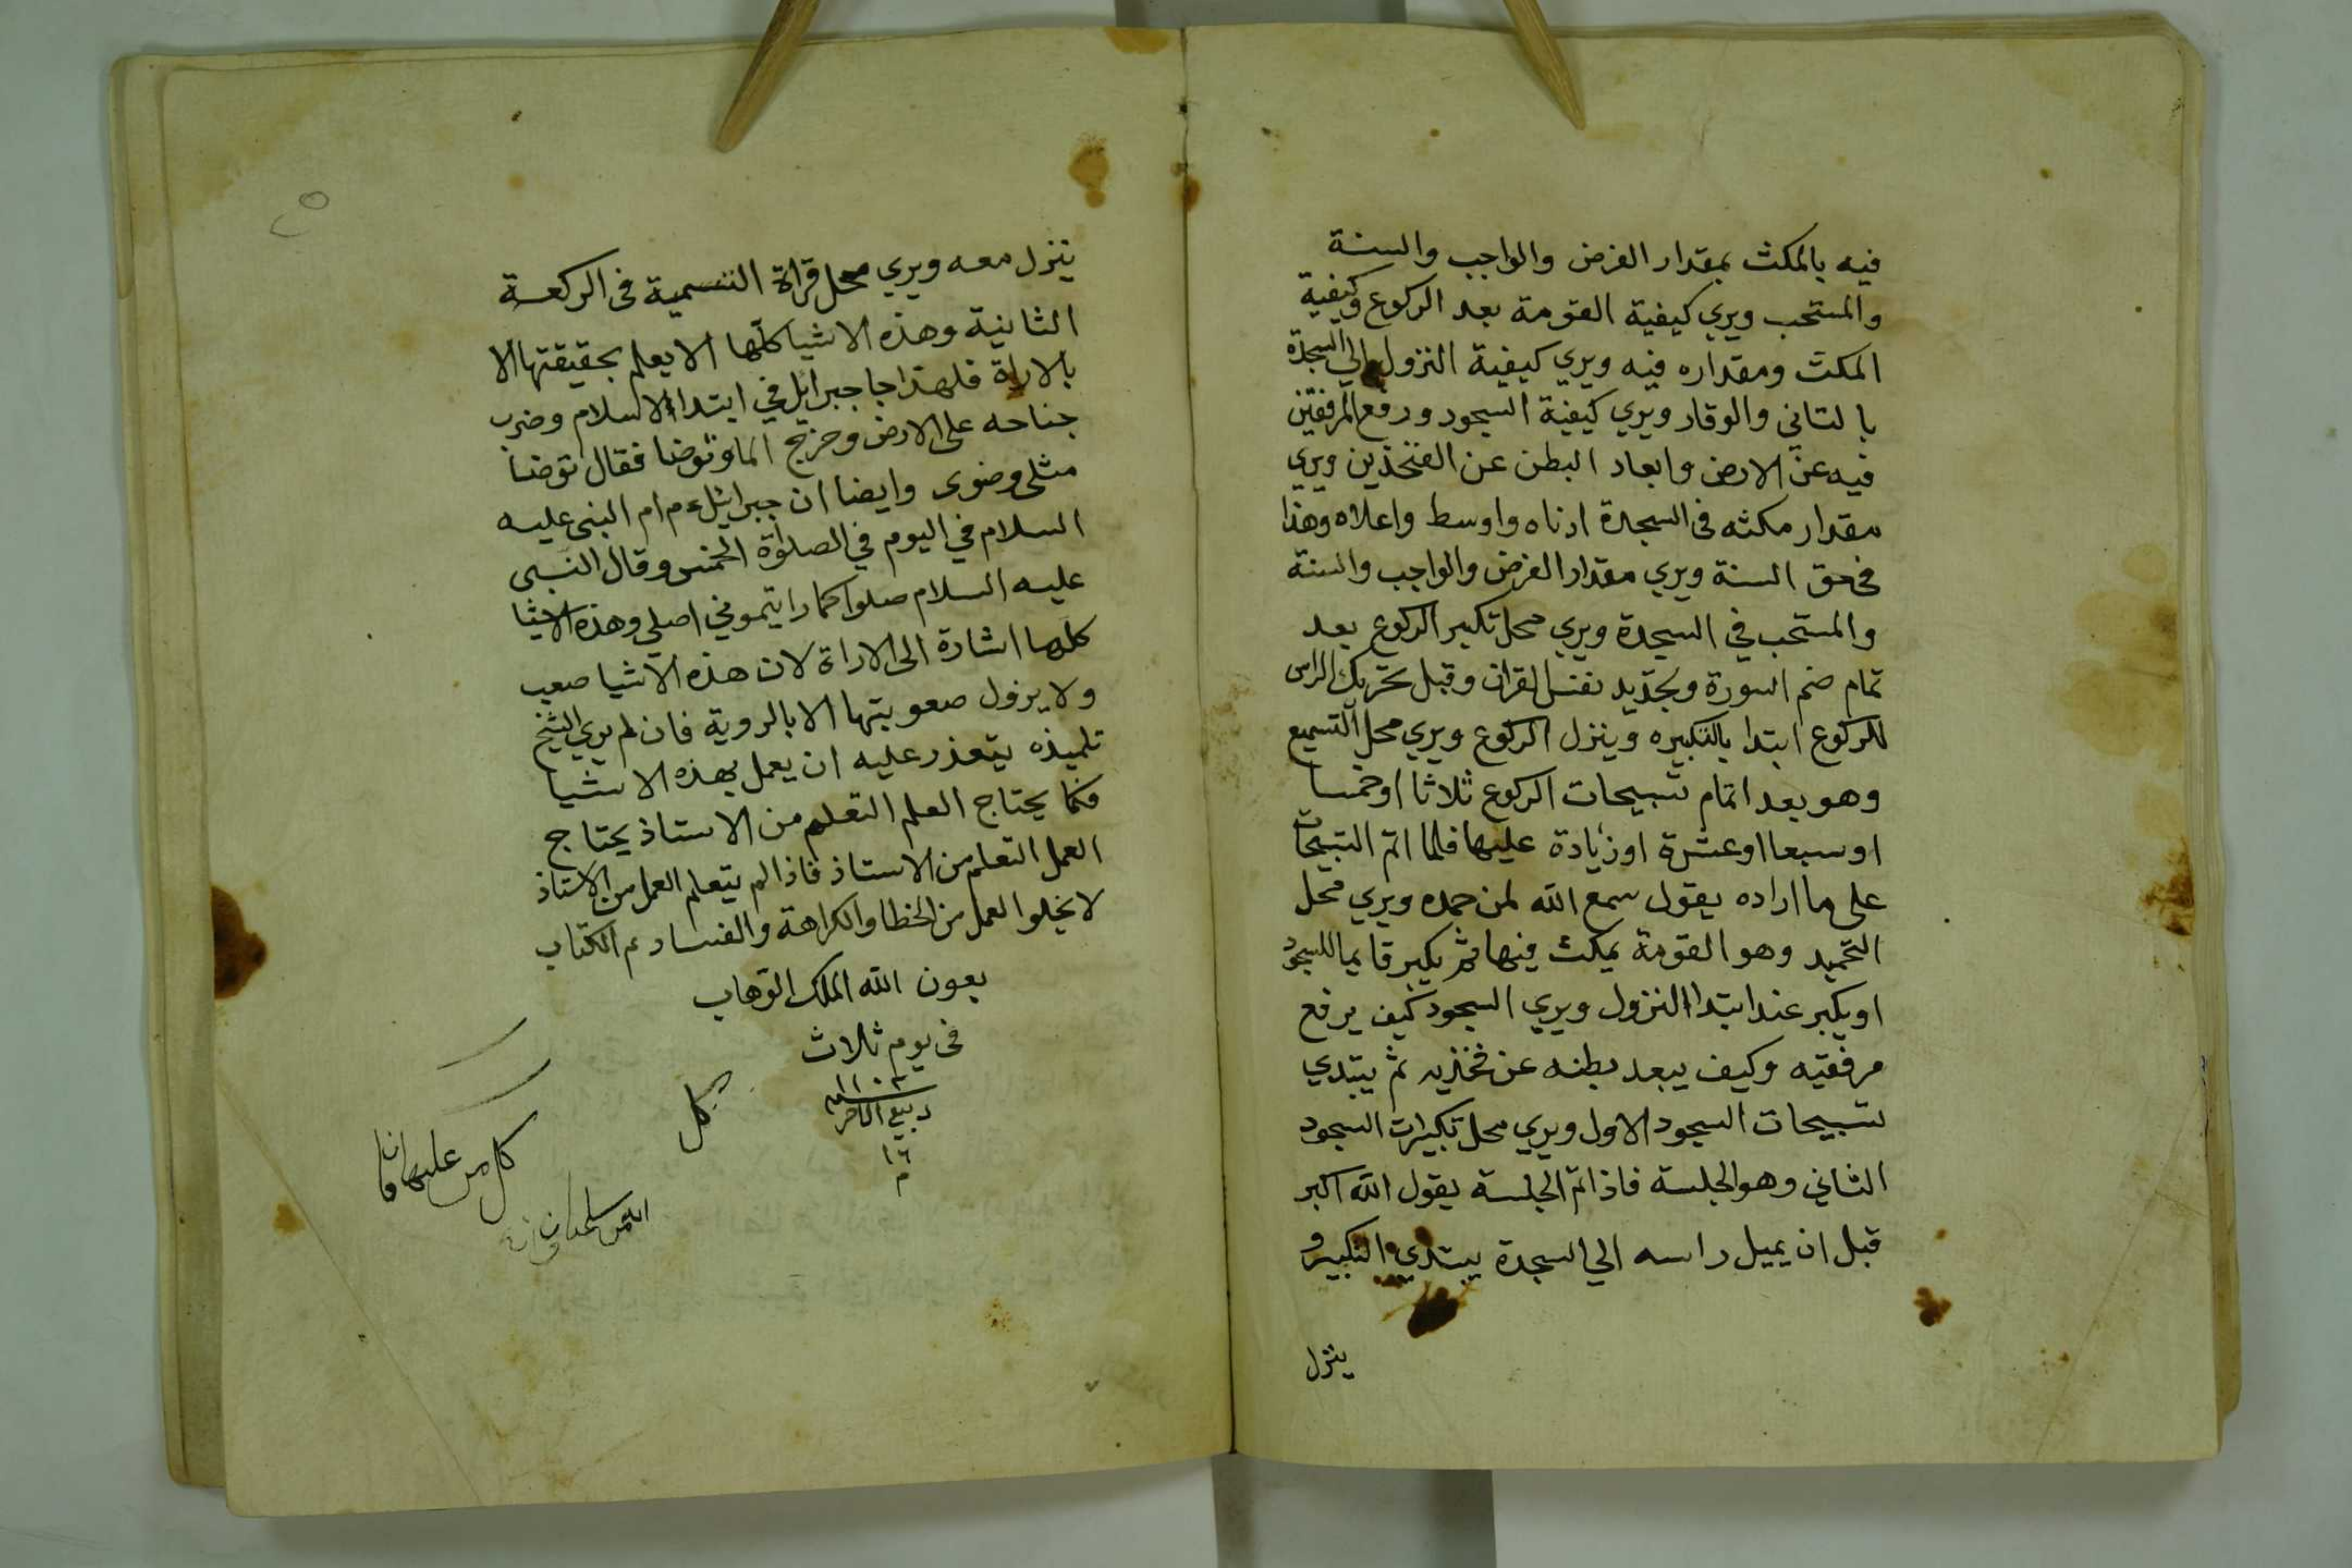 فيه بالمكث بمقدار الفرض والواجب والسنة
والمستحب ويري كيفية القومة بعد الركوع وكيفية
المكث ومقداره فيه ويري كيفية النزول الي السجدة
بالتاني والوقار ويري كيفية السجود ورفع المرفقين
فيه عن الارض وابعاد البطن عن الفخذين ويري
مقدار مكثه فى السجدة ادناه واوسط واعلاه وهذا
فى حق السنة ويري مقدار الفرض والواجب والسنة
والمستحب في السجدة ويري محل تكبير الركوع بعد
تمام ضم السورة وبجديد نفس القران وقبل تحريك الراس
للركوع ابتدا بالتكبيره وينزل الركوع ويري محل التسميع
وهو بعد اتمام تسبيحات الركوع ثلاثا اوخمسا
اوسبعا اوعشرة اوزيادة عليها فلما اتم التسبيحات
على ما اراده يقول سمع الله لمن حمده ويري محل
التحميد وهو القومة يمكث فيها ثم يكبر قايما للسجود
اويكبر عند ابتدا النزول ويري السجود كيف يرفع
مرفقيه وكيف يبعد بطنه عن فخذيه ثم يبتدي
تسبيحات السجود الاول ويري محل تكبيرات السجود
الثاني وهو الجلسة فاذا تم الجلسة يقول الله اكبر
قبل ان يميل راسه الي السجدة يبتدي التكبير و
ينزل
ينزل معه ويري محل قراة التسمية فى الركعة
الثانية وهذه الاشيا كلها لا يعلم بحقيقتها الا
بالاراة فلهذا جا جبرايل في ابتدا الاسلام وضرب
جناحه على الارض وخرج الما وتوضا فقال توضا
مثلى وضوى وايضا ان جبرائيل عم ام النبى عليه
السلام في اليوم في الصلوة الخمس وقال النبى
عليه السلام صلوا كما رايتموني اصلي وهذه الاشيا
كلها اشارة الى الاراة لان هذه الاشيا صعب
ولا يزول صعوبتها الا بالروية فان لم يري الشيخ
تلميذه يتعذر عليه ان يعمل بهذه الاشيا
فكما يحتاج العلم التعلم من الاستاذ يحتاج
العمل التعلم من الاستاذ فاذا لم يتعلم العمل من الاستاذ
لا يخلوا العمل من الخطا والكراهة والفساد تم الكتاب
بعون الله الملك الوهاب
فى يوم ثلاث
١١٠٣
ربيع الاخر
١٦
م
كل
كل من عليها فان